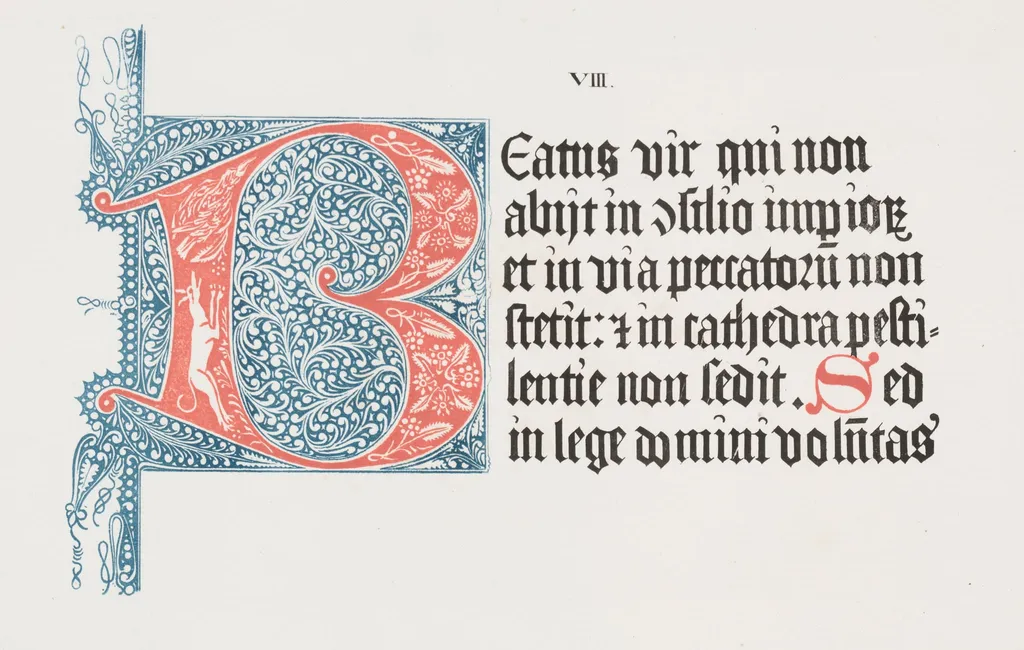 VIII.
BEatus vir qui non
abijt in ↄsilio impioꝝ
et in via peccatorū non
stetit: ⁊ in cathedra pesti-
lentie non sedit. Sed
in lege domini volūtas